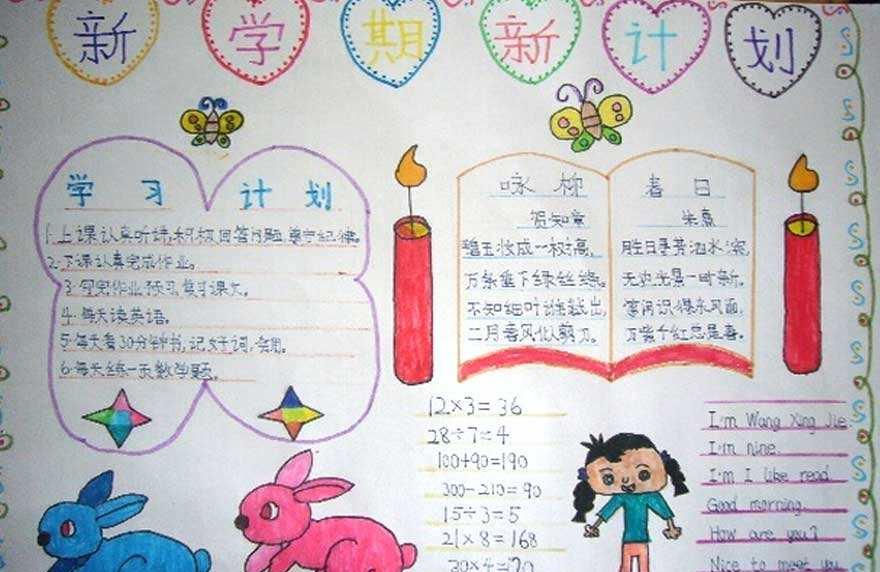 新学期新计划
学习 计划
1.上课认真听讲,积极回答问题,遵守纪律。
2.下课认真完成作业。
3.写完作业预习,复习课文。
4.每天读英语。
5.每天看30分钟书,记好词,好句。
6.每天练一页数学题。
咏柳
贺知章
碧玉妆成一树高,
万条垂下绿丝绦。
不知细叶谁裁出,
二月春风似剪刀。
春日
朱熹
胜日寻芳泗水滨,
无边光景一时新。
等闲识得东风面,
万紫千红总是春。
12×3=36
28÷7=4
100+90=190
300-210=90
15÷3=5
21×8=168
I'm Wang Xing Jie.
I'm nine.
I'm I like read
Good morning
How are you?
Nice to meet you